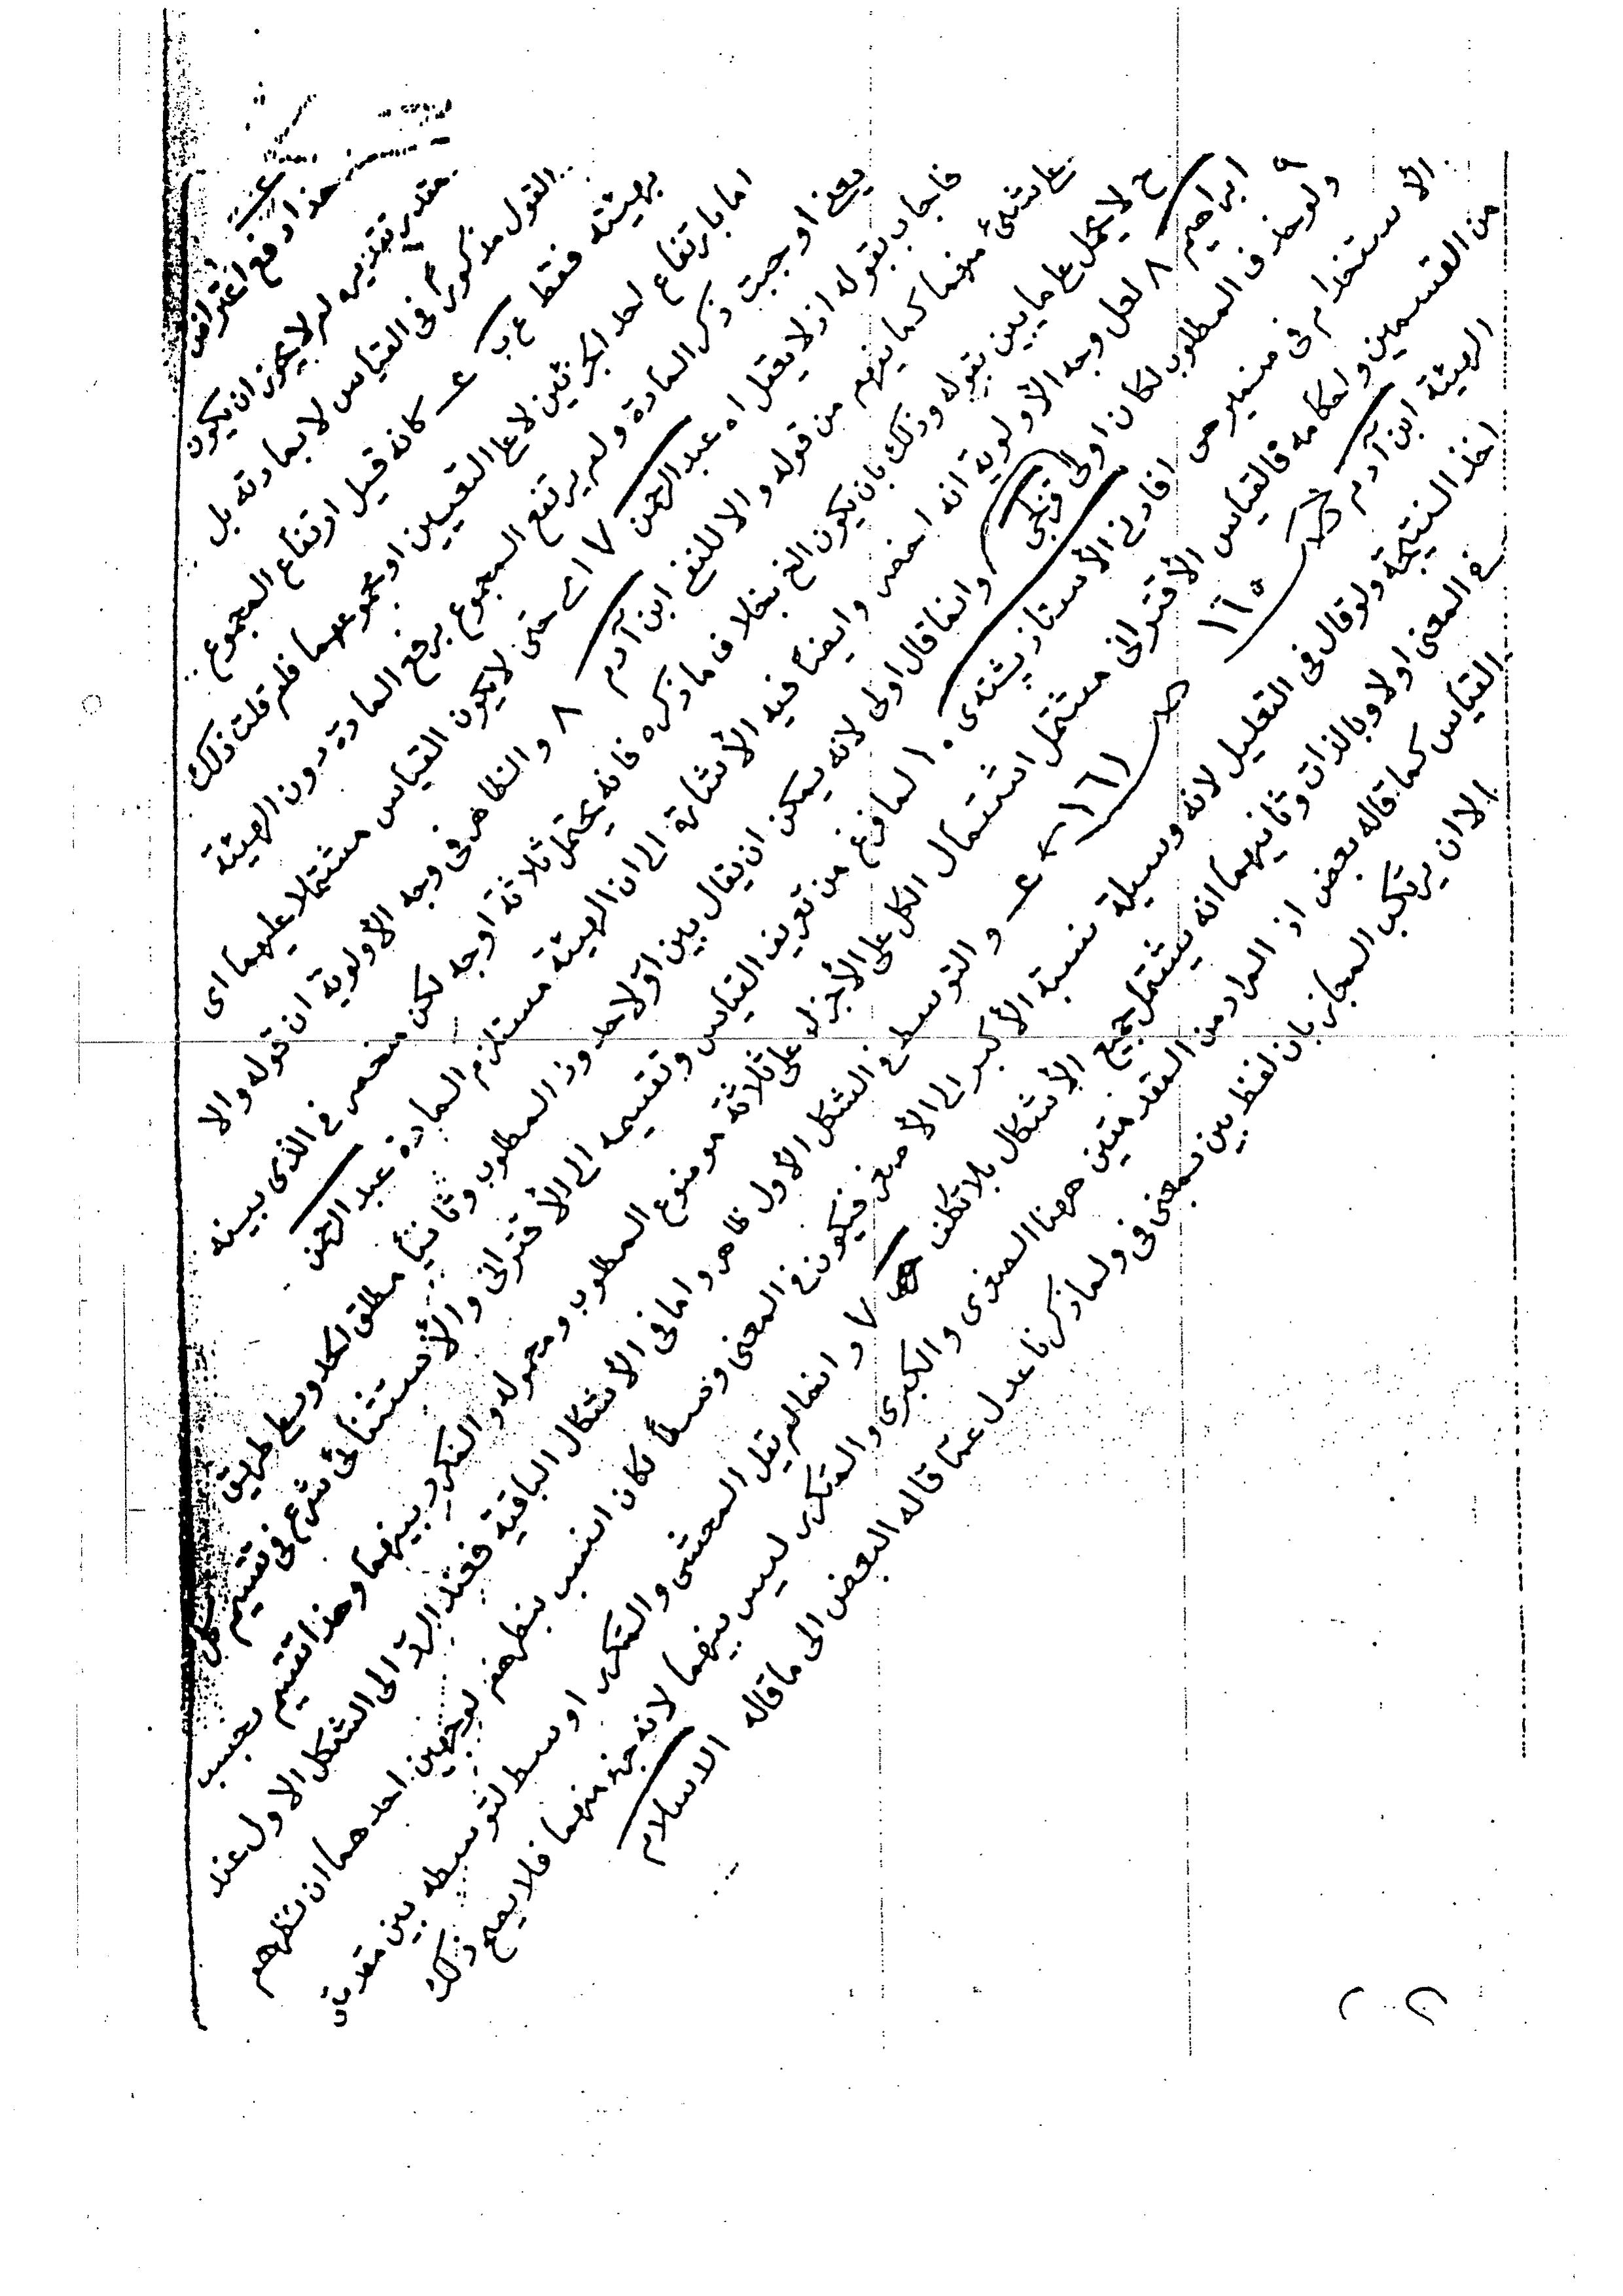 هذا دفع اعتراض
مقدر تقديره لم لا يجوز ان يكون
القول مذكورا فى القياس لا بمادته بل
بهيئته فقط عب ع كانه قيل ارتفاع المجموع
اما بارتفاع احد الجزئين لا على التعيين او مجموعهما فلم قلت ذلك
يعنى اوجبت ذكر المادة ولم يرتفع المجموع برفع المادة دون الهيئة
فاجاب بقوله اذ لا يعقل اه عبد الرحمن ٧ اى حتى لا يكون القياس مشتملا عليهما اى
على شئ منهما كما يفهم من قوله والا ابن آدم ٨ والظاهر فى وجه الأولوية ان قوله والا
ح لا يحمل على ما يبين بقوله وذلك بان يكون الخ بخلاف ما ذكره فانه يحتمل ثلاثة اوجه لكن منحصر فى الذى بينه
ابراهيم ٨ لعل وجه الأولوية انه اخصر وايضا فيه الأشارة الى ان الهيئة مستلزم المادة عبد الرحمن
٩ ولو حذف المطلوب لكان اولى قزلجى وانما قال اولى لانه يمكن ان يقال بين اولا حدود المطلوب وثانيا مطلق الحدود على طريق
الأستخدام فى افادنى الأستاذ پشتدى ١٠ لما فرغ من تعريف القياس وتقسيمه الى الأقترانى والأستثنائى شرع فى تقسيم كل
من القسمين ولحكامه فالقياس الأقترانى مشتمل اشتمال الكل على الأجزاء على ثلاثة موضوع المطلوب ومحموله والمكرر بينهما وهذا تقسيم بحسب
الهيئة ابن آدم والتوسط فى الشكل الأول ظاهر واما فى الأشكال الباقية فعند الرد الى الشكل الاول عند
اخذ النتيجة ولو قال فى التعليل لانه وسيلة نسبة الأكبر الى الأصغر فيكون فى المعنى وسطا لكان انسب بنظرهم لوجهين احدهما ان نظرهم
فى المعنى اولا وبالذات وثانيهما انه يشتمل جميع الأشكال بلا تكلف ٧ وانما لم يقل المحشى والمكرر اوسط لتوسطه بين مقدمتى
القياس كما قاله بعض اذ المراد من المقدمتين ههنا الصغرى والكبرى والمكرر ليس بينهما لانه جزء منهما فلا يصح ذلك
الا ان يرتكب المجاز بان لفظ بين بمعنى فى ولما ذكرنا عدل عما قاله البعض الى ما قاله الاسلام